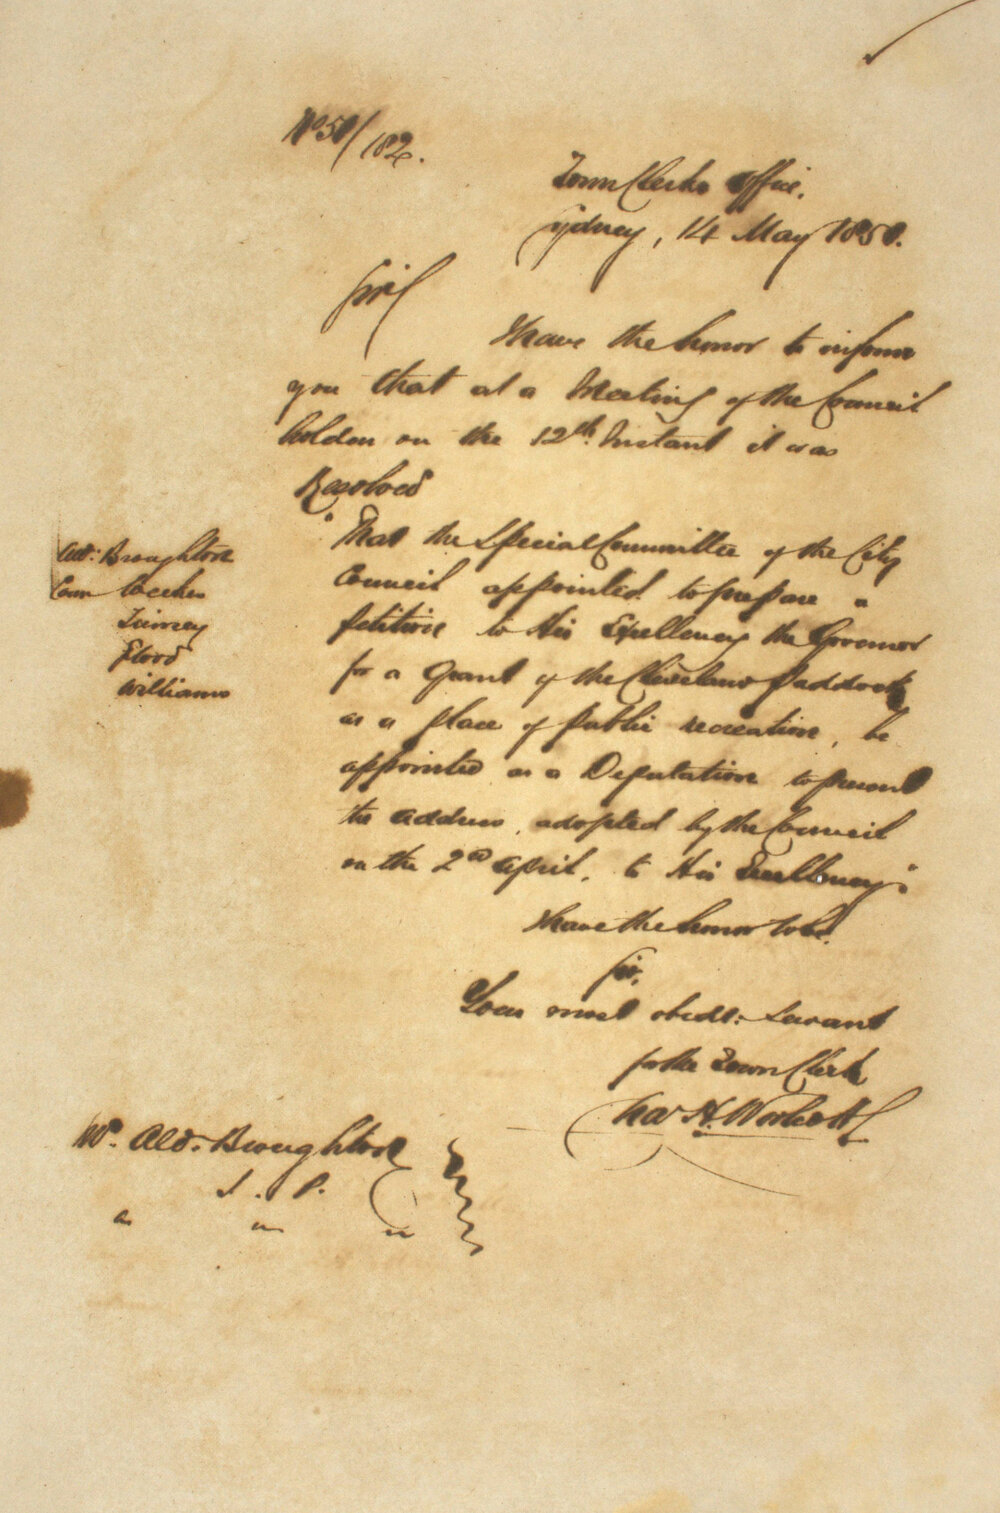 No 50/182.
Town Clerks Office.
Sydney, 14 May 1850.
Sir
I have the honor to inform
you that at a Meeting of the Council
holden on the 12th. Instant it was
Resolved
"That the Special Committee of the City
Council appointed to prepare a
petition to His Excellency the Governor
for a Grant of the Cleveland Paddock
as a place of public recreation, be
appointed as a Deputation to present
the address, adopted by the Council
on the 2nd April, to His Excellency"
Ald: Broughton
Coun
Flood
Williams
I have the honor to be
Sir,
Your most obedt: Servant
for the Town Clerk
Chas H. Woolcott
Mr. Ald. Broughton
J. P.